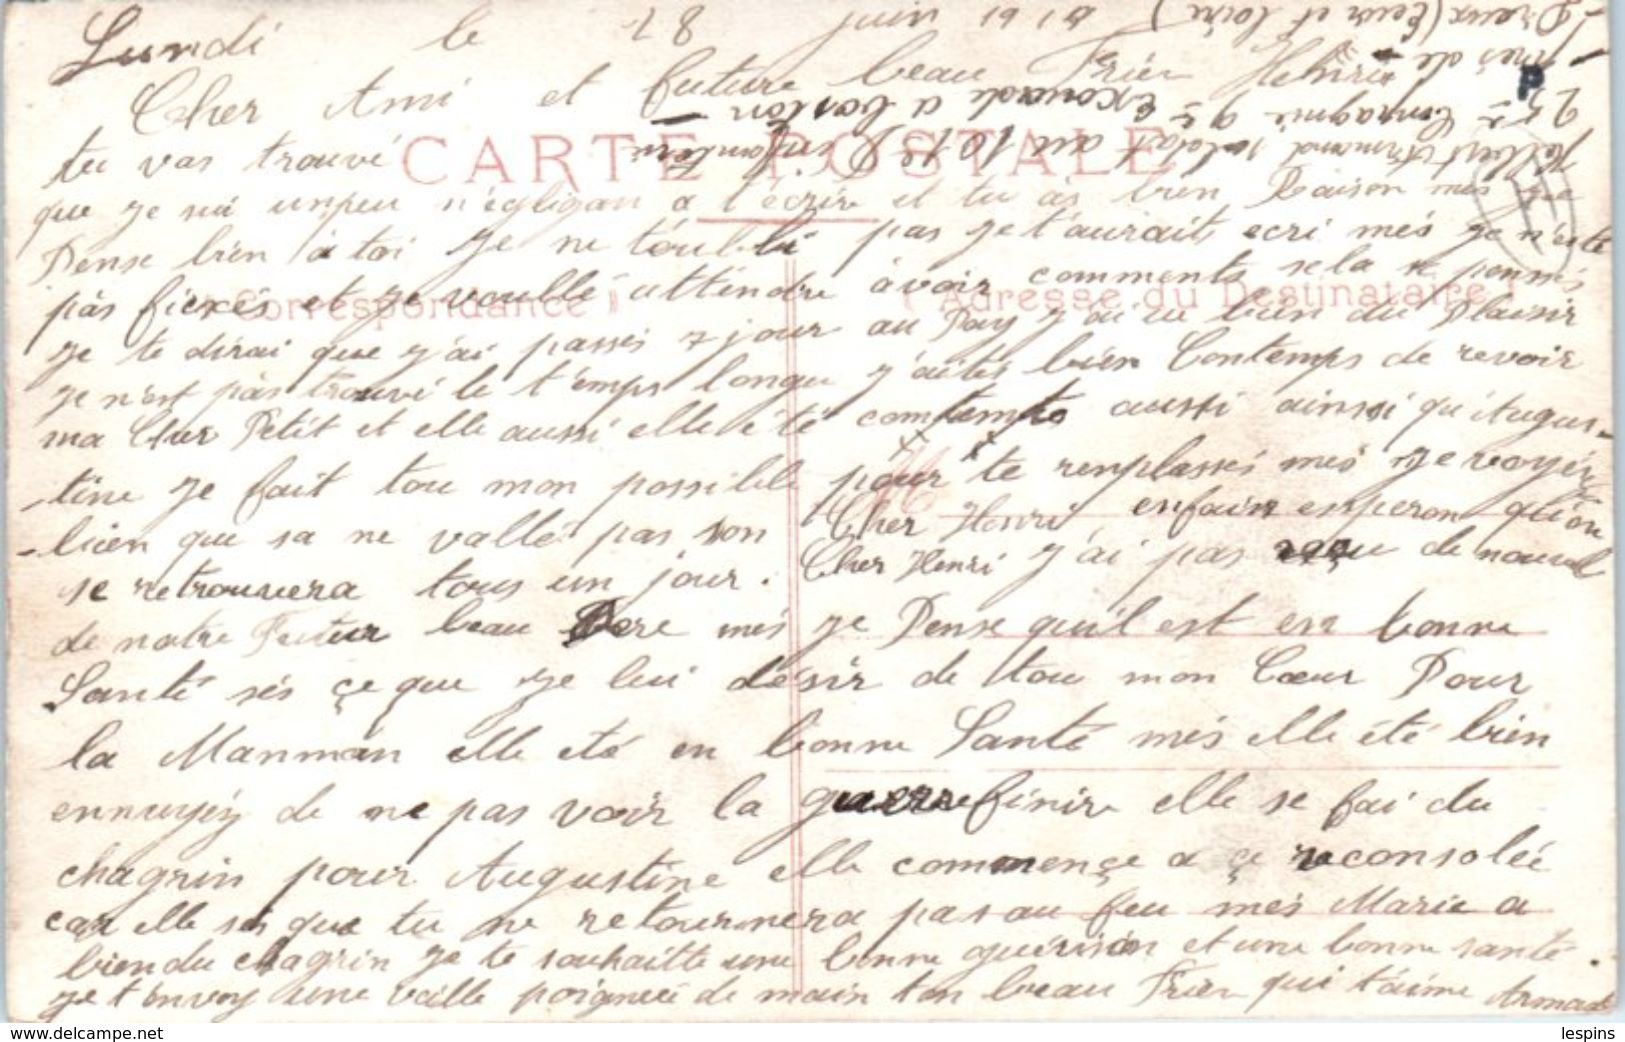 Lundi le 28 juin 191
Cher Ami et future beau Frier Henri
tu vas trouvé
CARTE POSTALE
que je sui unpeu n'égligan a l'écrire et tu às bien Raison mès je
Pense bien à toi je ne t'oubli pas je t'aurait ecri mès je n'etè
pàs fiexés et je voullé attendre àvoir comments sela se
Correspondance
Adresse du Destinataire
je te dirai que j'ai passés 7 jour au Pay j'ai u bien du Plaisir
je n'est pàs trouvé le t'emps longue j'aités bien Contemps de revoir
ma Cher Petit et elle aussi elle été comtempts aussi ainsi qu'Augus-
-tine je fait tou mon possible pour te remplassés mès je voyés
-bien que sa ne vallé pas son Cher Henri enfain esperon qu'on
se retrouvera tous un jour. Cher Henri j'ai pas reçu de nouvel
de notre Futur beau Pere mès je Pense qu'il est en bonne
Santé sès çe que je lui désir de tou mon Cœur Pour
la Manman elle eté en bonne Santé mès elle été bien
ennuyéy de ne pas voir la guerre finire elle se fai du
chagrin pour Augustine elle commençe a çe reconsolée
car elle sés que tu ne retournera pas au feu mès Marie a
bien du chagrin je te souhaitte une bonne guérison et une bonne santé.
je t'envoy une vaille poignée de main ton beau Frier qui t'aime Armand
Armand soldat au 101e D'infanterie
25e Compagnie 9e Excouade a
près de
Dreux (Eure et Loire)
P
H
lespins